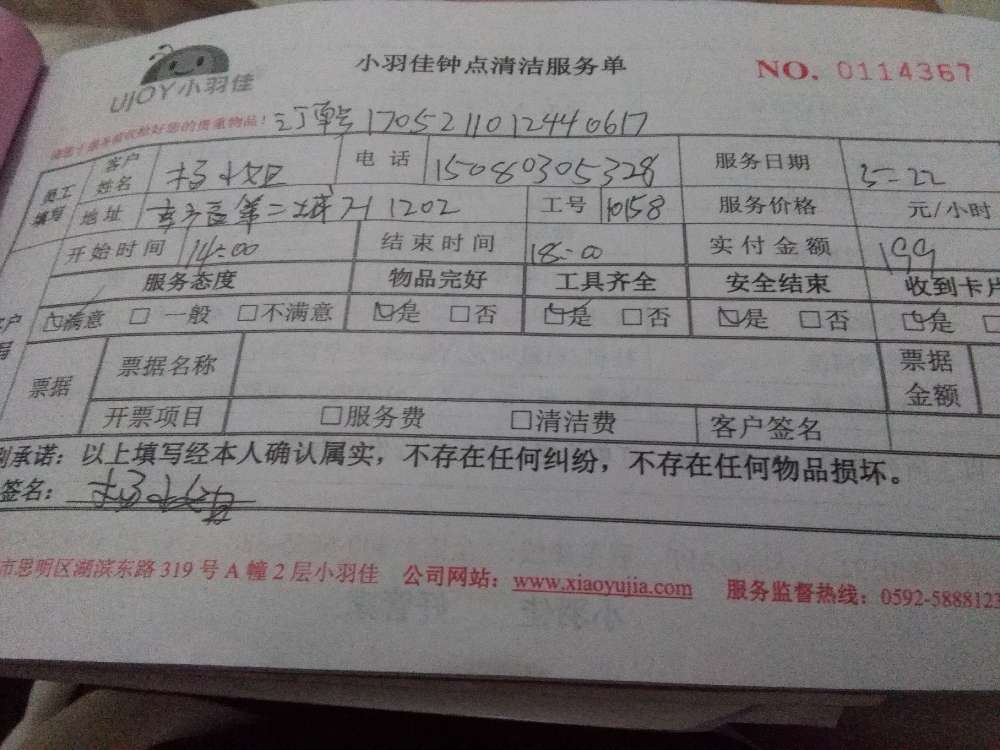 UJOY小羽佳
小羽佳钟点清洁服务单
NO. 0114367
订单号 1705211012440617
员工填写
客户姓名
电话 15080305328
服务日期 5-22
地址 1202
工号 10158
服务价格 元/小时
开始时间 14:00
结束时间 18:00
实付金额 199
服务态度 物品完好 工具齐全 安全结束 收到卡片
满意 一般 不满意 是 否 是 否 是 否 是
票据 票据名称 票据金额
开票项目 服务费 清洁费 客户签名
承诺：以上填写经本人确认属实，不存在任何纠纷，不存在任何物品损坏。
签名：
市思明区湖滨东路 319 号 A 幢 2 层小羽佳 公司网站：www.xiaoyujia.com 服务监督热线：0592-5888123